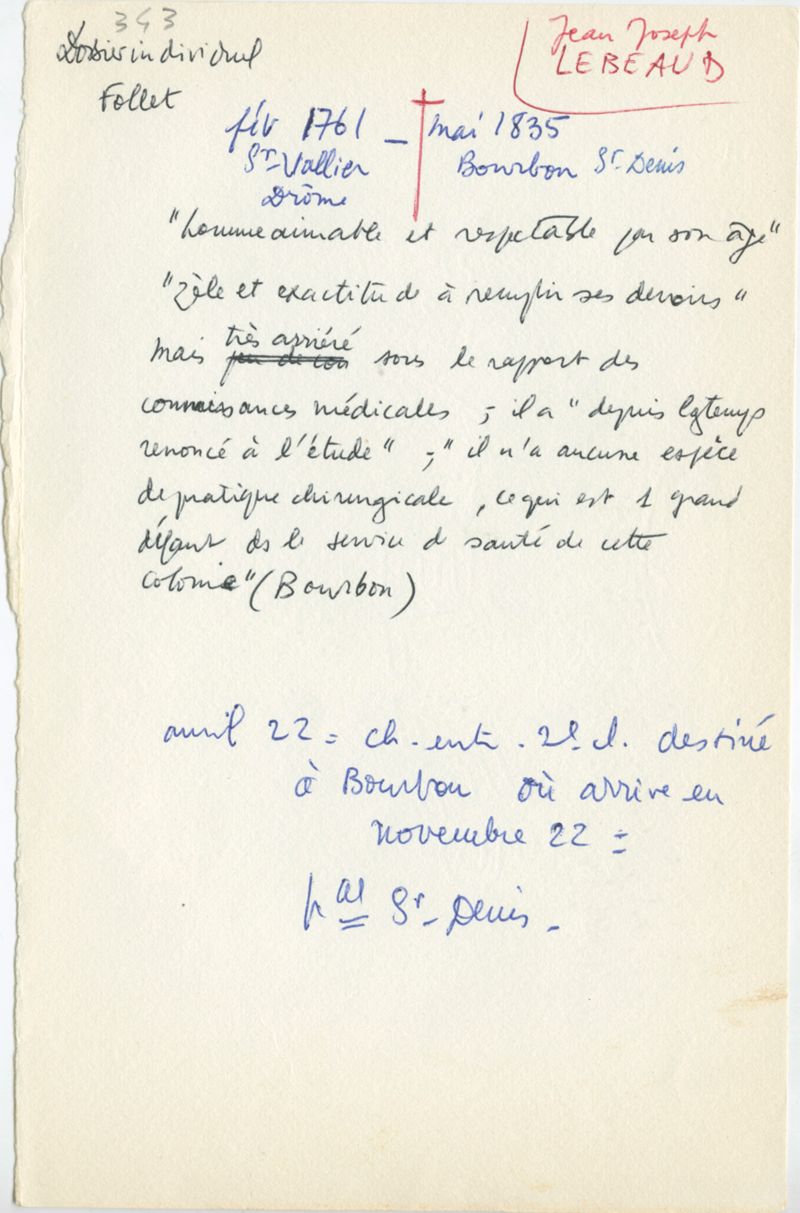 343
Dossier individuel
Follet
Jean Joseph
LEBEAUD
fév 1761 – mai 1835
St-Vallier Bourbon St-Denis
Drôme
"homme aimable et respectable par son âge"
"zèle et exactitude à remplir ses devoirs"
très arriéré
mais peu de con sous le rapport des
connaissances médicales ; – il a "depuis lgtemps
renoncé à l'étude" ; – "il n'a aucune espèce
de pratique chirurgicale, ce qui est 1 grand
défaut ds le service de santé de cette
colonie" (Bourbon)
avril 22 = ch. ent. 2e cl. destiné
à Bourbon où arrive en
novembre 22 =
St-Denis –